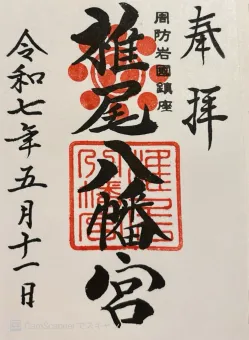 奉拝
周防岩國鎮座
椎尾八幡宮
令和七年五月十一日